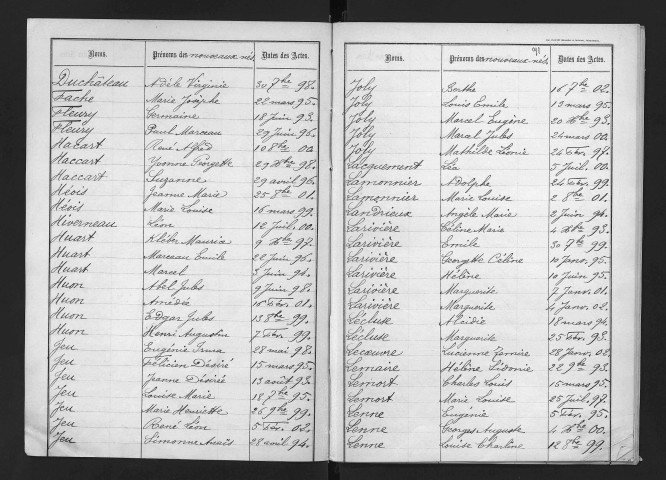 Noms. Prénoms des nouveaux nés Dates des Actes.
Duchâteau Adèle Virginie 30 7bre 98.
Fache Marie Josèphe 22 mars 95.
Fleury Germaine 18 juin 93.
Fleury Paul Marceau 29 juin 96.
Hacart René Alfred 10 8bre 00
Haccart Yvonne Georgette 29 Xbre 98.
Haccart Suzanne 29 avril 96.
Héois Jeanne Marie 25 8bre 01.
Héois Marie Louise 16 mars 99.
Hiverneau Léon 12 juil. 00.
Huart Kléber Maurice 9 Xbre 97.
Huart Marceau Emile 22 juin 96.
Huart Marcel 3 juin 94.
Huon Abel Jules 9 juin 98.
Huon Amédée 16 Fév. 01.
Huon Edgar Jules 13 8bre 99.
Huon Henri Augustin 7 Fév. 99.
Jeu Eugénie Irma 28 mai 98.
Jeu Félicien Désiré 15 mars 95.
Jeu Jeanne Désiré 13 août 93.
Jeu Louise Marie 18 7bre 95.
Jeu Marie Henriette 26 9bre 99.
Jeu René Léon 5 Fév. 02.
Jeu Simonne Anaïs 28 avril 94.
Noms. Prénoms des nouveaux nés Dates des Actes.
Joly Berthe 16 7bre 02.
Joly Louis Emile 13 mars 95.
Joly Marcel Eugène 20 Xbre 93.
Joly Marcel Jules 24 mars 00.
Joly Mathilde Léonie 24 Fév. 97.
Lacquement Léa 5 Juil. 00.
Lamonnier Adolphe 24 Fév. 99.
Lamonnier Marie Louise 2 8bre 01.
Landrieux Angèle Marie 2 juin 94.
Larivière Céline Marie 4 Xbre 93.
Larivière Emile 30 7bre 99.
Larivière Georgette Céline 10 Janv. 95.
Larivière Hélène 10 juin 95.
Larivière Marguerite 17 Janv. 01.
Larivière Marguerite 4 Janv. 02.
Lécluse Alcidie 18 mars 94.
Lécluse Marguerite 25 Fév. 93.
Lecoeuvre Lucienne Zémire 28 Janv. 02.
Lemaire Hélène Sidonie 22 9bre 93.
Lemort Charles Louis 15 mars 95.
Lemort Marie Louise 25 Juil. 97.
Lenne Eugénie 5 Fév. 95.
Lenne Georges Auguste 4 Xbre 00.
Lenne Louise Charline 12 8bre 99.